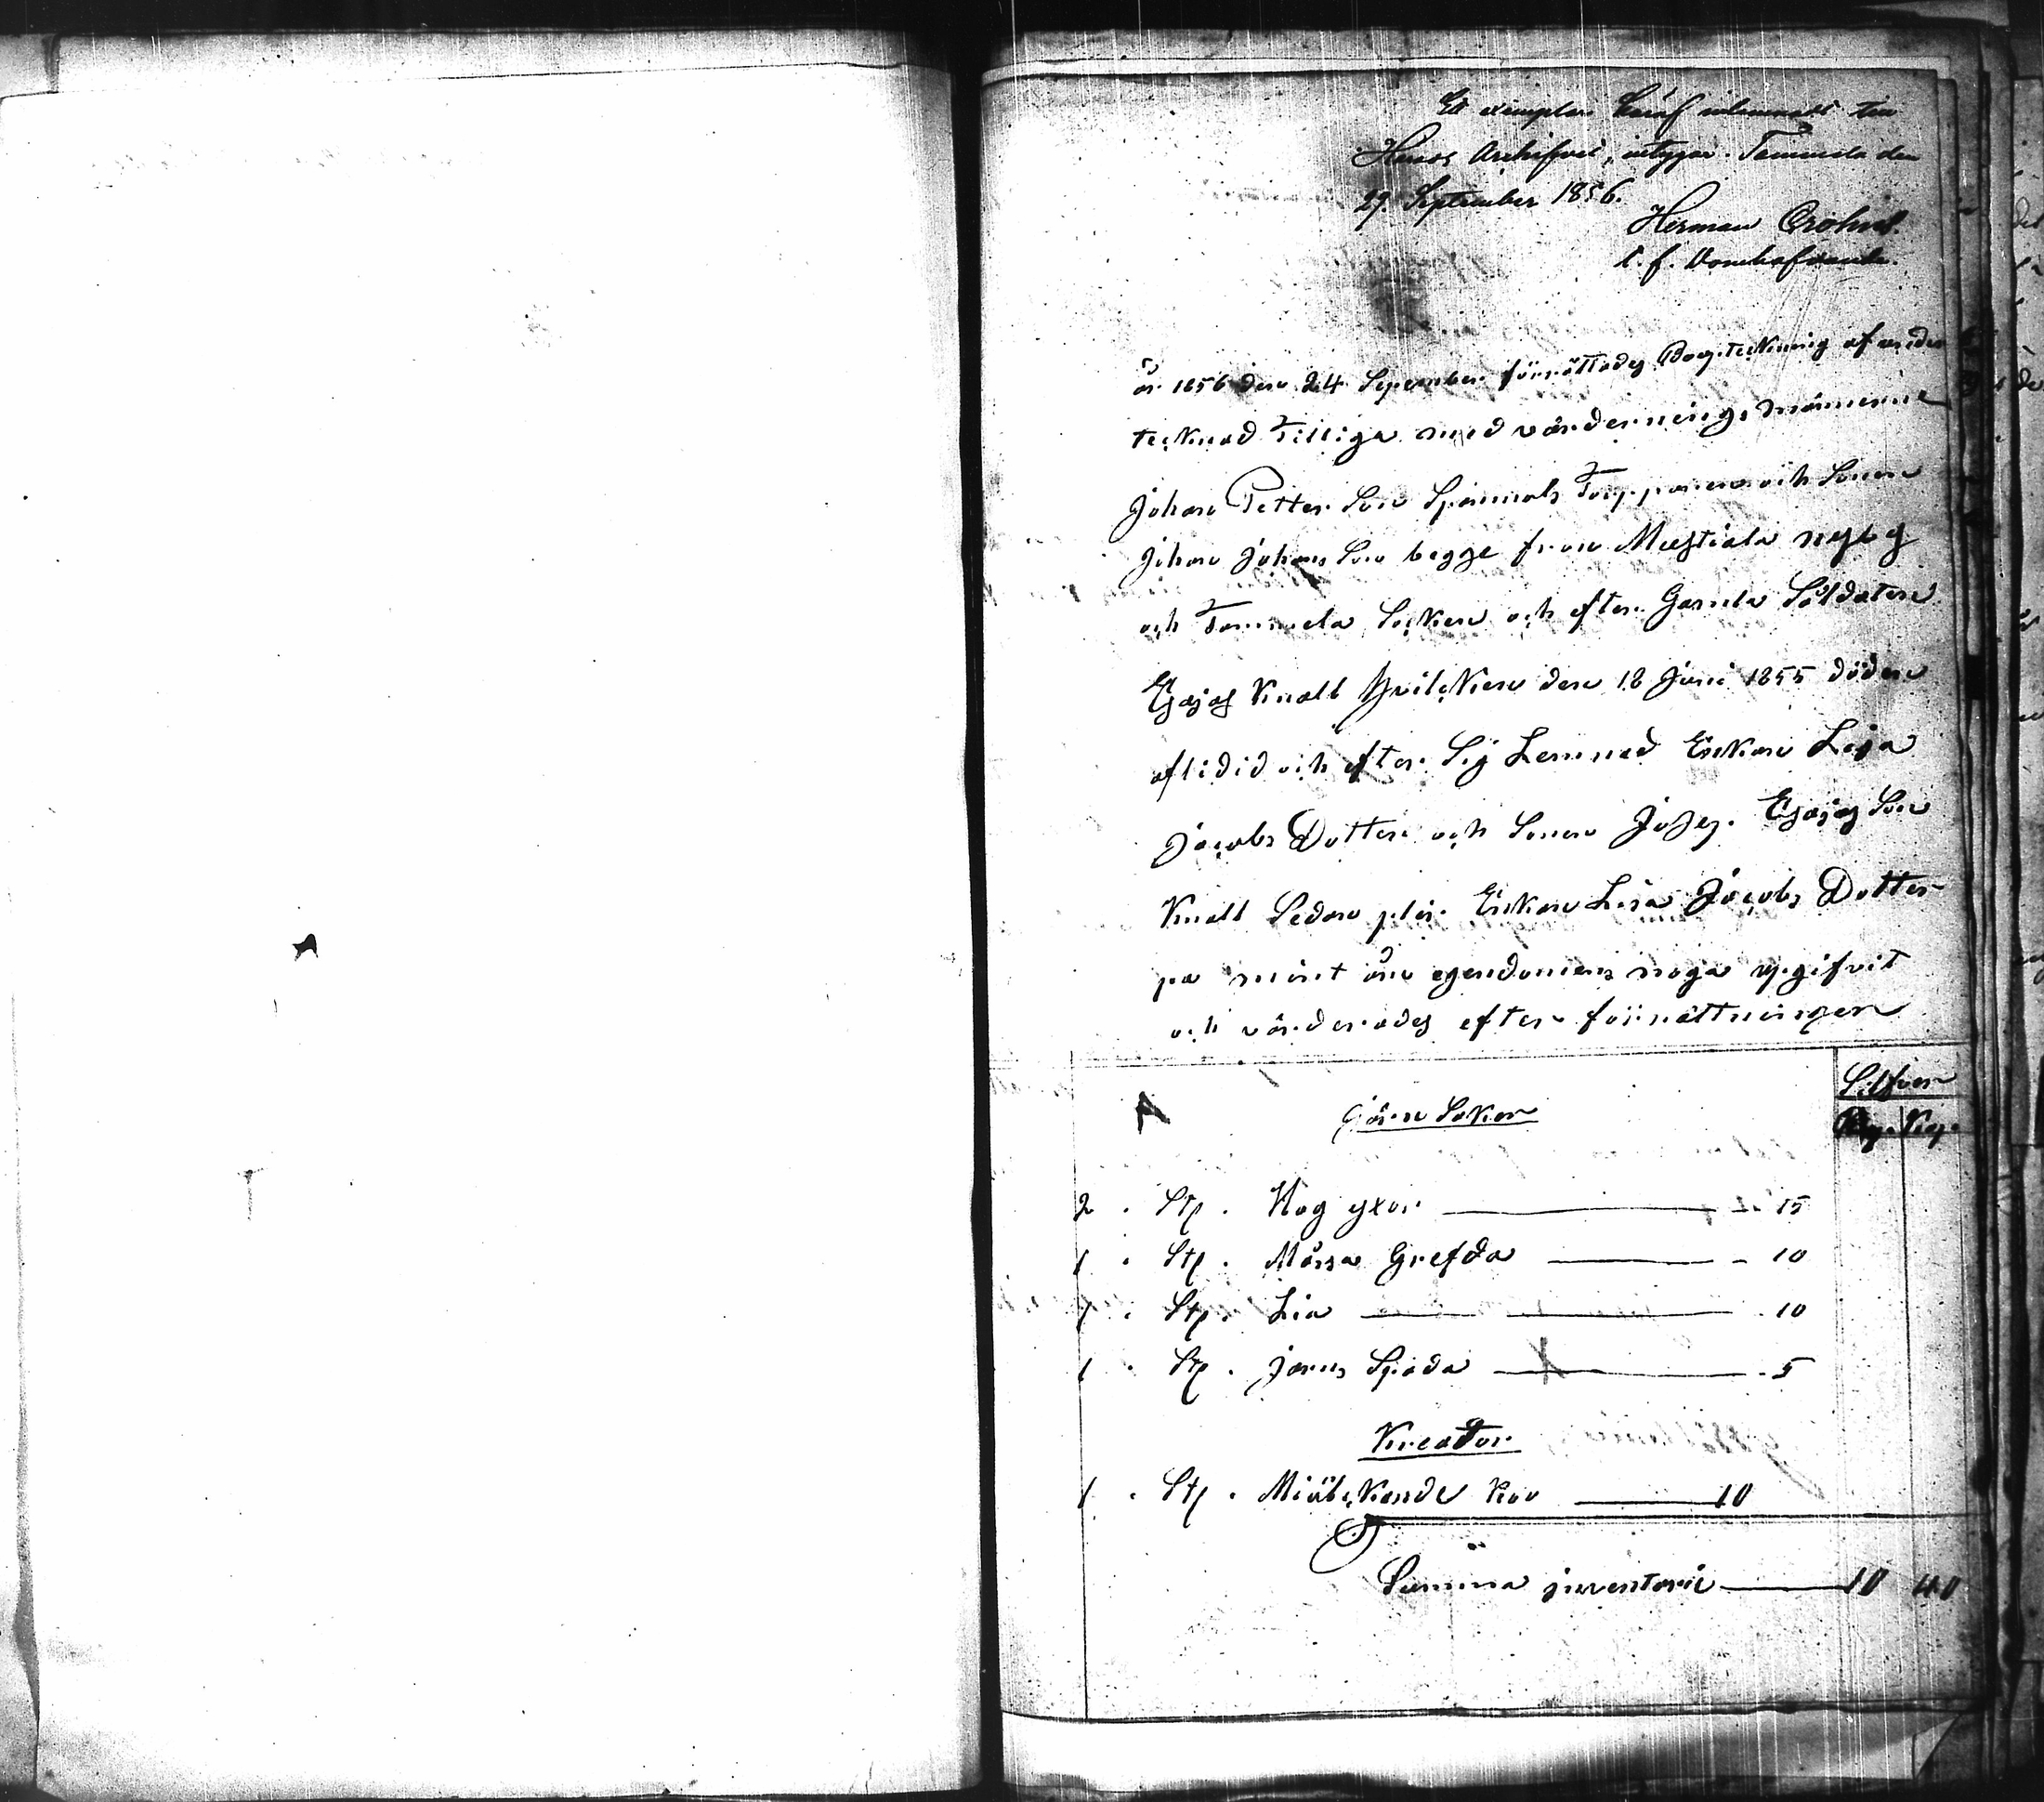 Et exemplar häraf inlemnadt till
Härads Archifvet, intygar. Tammela den
29. September 1856.
Herman Crohns.
t. f. Domhafvande.
år 1856 den 24 September förrättades Bogteckning af under
tecknad Tilliga med värdernings männerne
Johan Petter Son Spännals Torpparen och Sonen
Johan Johans Son begge från Mustiala nyby
och Tammela Socken och efter Gamla Soldaten
Esajas Knall hvilcken den 18 Juni 1855 döden
aflidid och efter Sig Lemnad Enkan Lisa
Jacobs Dotter och Sonen Josep. Esajas Son
Knall Sedan Enkan Lisa Jacobs Dotter
på mint ån egendomens noga upgifvit
och värderades efter förrättningen
Silfver
Järn Saker
Rup. Kop.
2 . Stp . Hog yxor — 15
1 . Stp . Mässa Grefda — 10
1 . Stp . Lia — 10
1 . Stp . jarns Spada — 5
Kreator
1 . Stp . Miölckande koo — 10
Summa jnventarie — 10 40